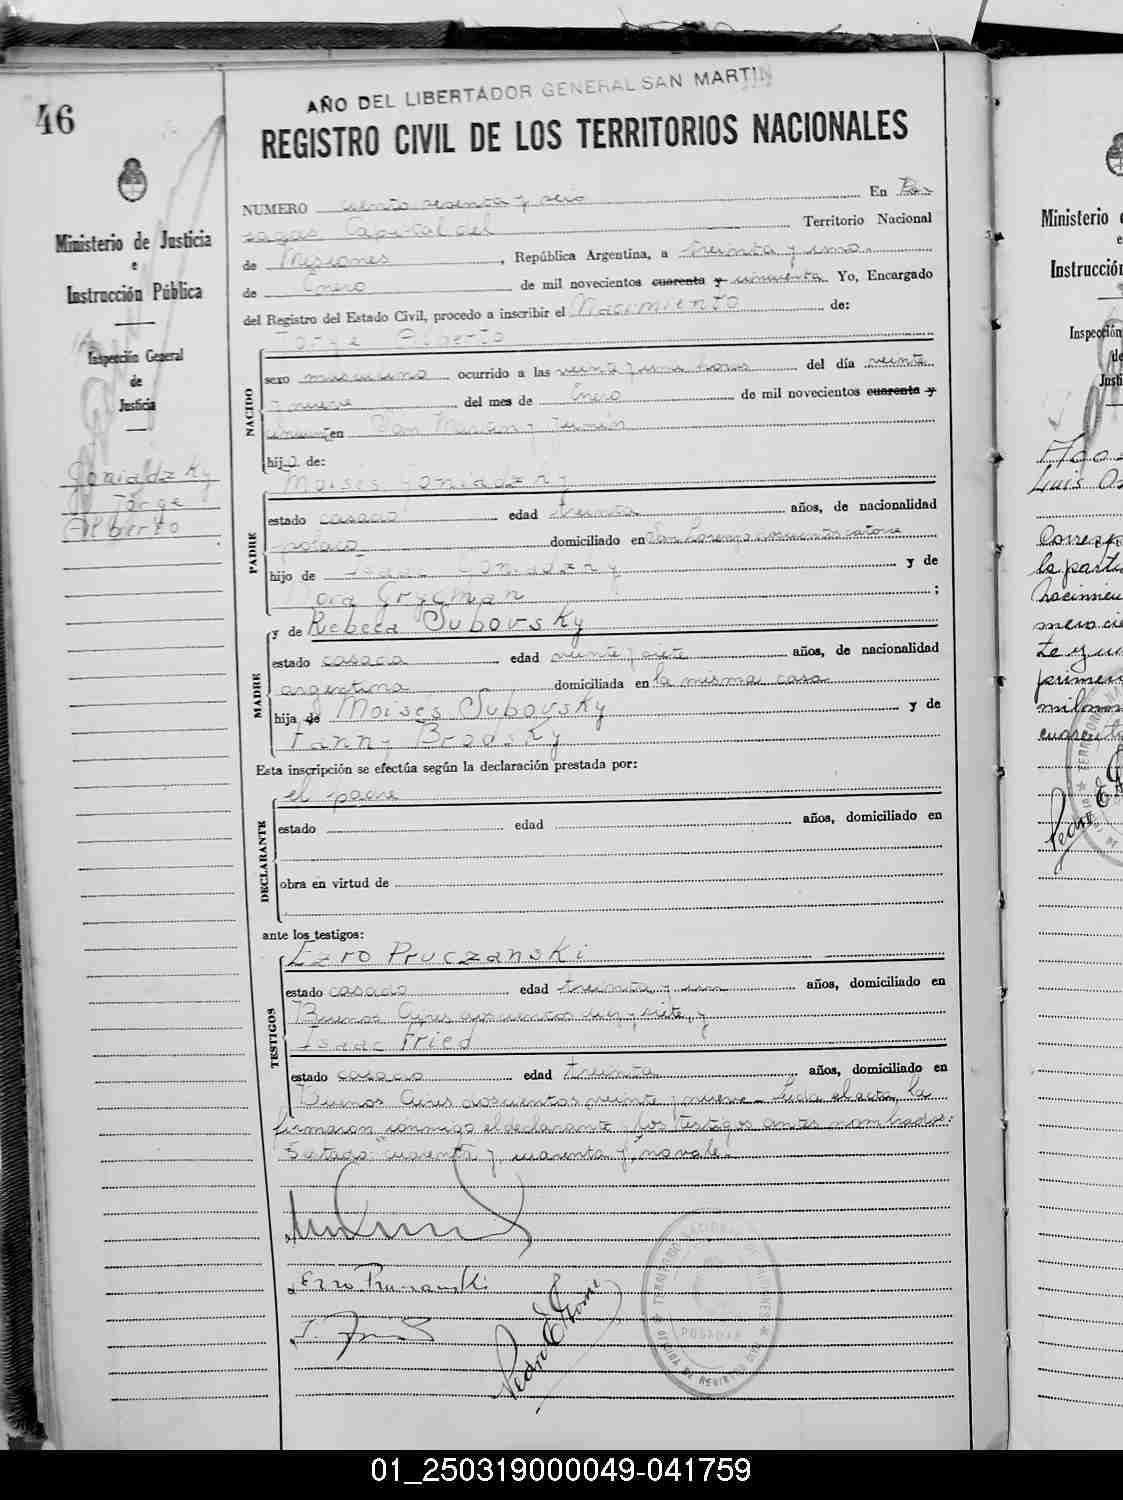 46
AÑO DEL LIBERTADOR GENERAL SAN MARTIN
REGISTRO CIVIL DE LOS TERRITORIOS NACIONALES
Ministerio de Justicia
e
Instrucción Pública
Inspección General
de
Justicia
Goniadzky
Jorge
Alberto
NUMERO ciento sesenta y seis En Po
sadas Capital del Territorio Nacional
de Misiones, República Argentina, a treinta y uno
de Enero de mil novecientos cuarenta y cincuenta Yo, Encargado
del Registro del Estado Civil, procedo a inscribir el Nacimiento de:
NACIDO
Jorge Alberto
sexo masculino ocurrido a las veinte y una horas del día veinte
y nueve del mes de Enero de mil novecientos cuarenta y
en San Martin y
hijo de:
PADRE
Moises Goniadzky
estado casado edad treinta años, de nacionalidad
polaco domiciliado en San Lorenzo catorce
hijo de Isaac Goniadzky y de
;
MADRE
y de Rebeca Subovsky
estado casada edad veinte y siete años, de nacionalidad
argentina domiciliada en la misma casa
hija de Moises Subovsky y de
Fanny Brodsky
Esta inscripción se efectúa según la declaración prestada por:
DECLARANTE
el padre
estado edad años, domiciliado en
obra en virtud de
ante los testigos:
TESTIGOS
Ezro Pruczanski
estado casado edad treinta y un años, domiciliado en
Buenos Aires diez y siete, y
Isaac Fried
estado casado edad treinta años, domiciliado en
Buenos Aires doscientos veinte y nueve. Leida el acta, la
firmaron conmigo el declarante y los testigos antes nombrados:
cuarenta y, cuarenta y, no vale.
Pedro E.
TERRITORIO NACIONAL DE MISIONES
POSADAS
OFICINA DE REGISTRO CIVIL
Ministerio
e
Instrucción
Inspección
de
Justi
Luis
la parti
primero
01_250319000049-041759